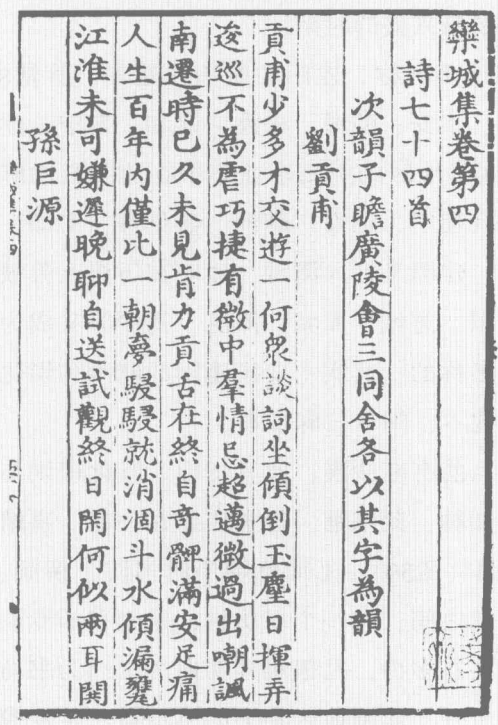 欒城集卷第四
詩七十四首
次韻子瞻廣陵會三同舍各以其字為韻
劉貢甫
貢甫少多才交遊一何衆談詞坐傾倒玉麈日揮弄
逡巡不為虐巧捷有微中羣情忌超邁微過出嘲諷
南遷時已久未見肯力貢舌在終自奇髀滿安足痛
人生百年内僅比一朝夢駸駸就消涸斗水傾漏甕
江淮未可嫌遲晚聊自送試觀終日閑何似兩耳閧
孫巨源